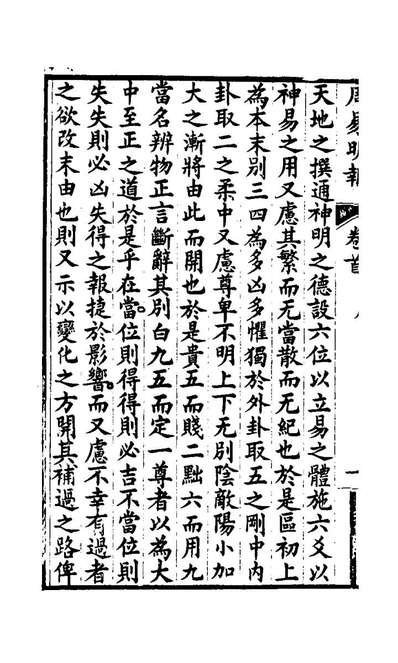 周易明報 卷首
天地之撰通神明之德設六位以立易之體施六爻以
神易之用又慮其繁而无當散而无紀也於是區初上
為本末別三四為多凶多懼獨於外卦取五之剛中內
卦取二之柔中又慮尊卑不明上下无別陰敵陽小加
大之漸將由此而開也於是貴五而賤二黜六而用九
當名辨物正言斷辭其別白九五而定一尊者以為大
中至正之道於是乎在當位則得得則必吉不當位則
失失則必凶失得之報捷於影響而又慮不幸有過者
之欲改末由也則又示以變化之方開其補過之路俾